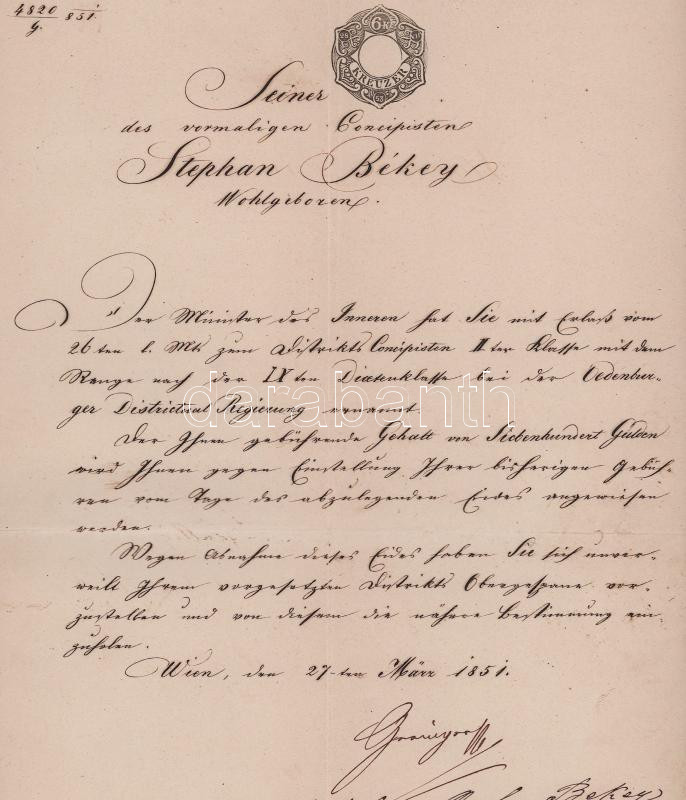 4820/G. 851.
6 Kr
KREUZER
Seiner
des vormaligen Concipisten
Stephan Békey
Wohlgeboren.
Der Minister des Inneren hat Sie mit Erlaß vom
26ten l. Mts zum Distrikts Concipisten IIter Klasse mit dem
Range nach der IXten Diätenklasse bei der Oedenbur-
ger Districtual Regierung ernannt.
Der Ihnen gebührende Gehalt von Siebenhundert Gulden
wird Ihnen gegen Einstellung Ihrer bisherigen Gebüh-
ren vom Tage des abzulegenden Eides angewiesen
werden.
Wegen Abnahme dieses Eides haben Sie sich unver-
weilt Ihrem vorgesetzten Distrikts Obergespane vor-
zustellen und von diesem die nähere Bestimmung ein-
zuholen.
Wien, den 27-ten März 1851.
Bekey
darabanth